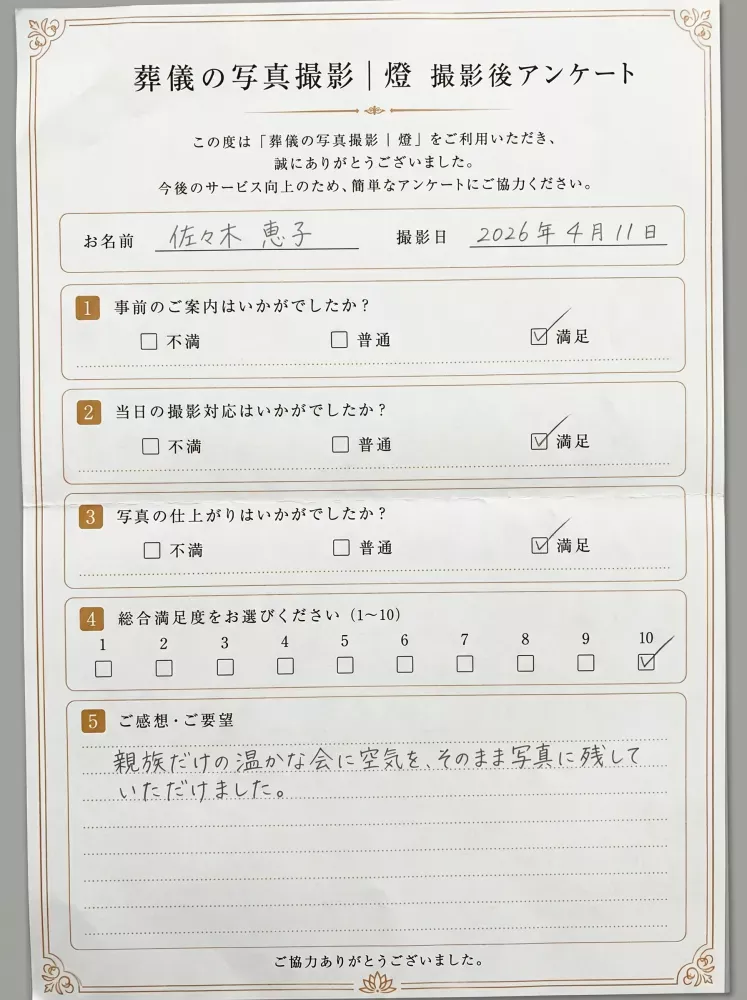 葬儀の写真撮影｜燈 撮影後アンケート
この度は「葬儀の写真撮影｜燈」をご利用いただき、
誠にありがとうございました。
今後のサービス向上のため、簡単なアンケートにご協力ください。
お名前 佐々木 恵子 撮影日 2026年4月11日
1 事前のご案内はいかがでしたか？
不満 普通 満足
2 当日の撮影対応はいかがでしたか？
不満 普通 満足
3 写真の仕上がりはいかがでしたか？
不満 普通 満足
4 総合満足度をお選びください（1〜10）
1 2 3 4 5 6 7 8 9 10
5 ご感想・ご要望
親族だけの温かな会に空気を、そのまま写真に残して
いただけました。
ご協力ありがとうございました。